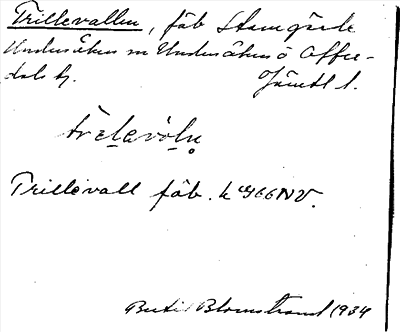 Trillevallen, fäb Stamgärde
Undersåkers sn Undersåkers o Offer-
dals tg. Jämtl l.
trìlevóln
Trillevall fäb. k 466NV.
Bertil Blomstrand 1934